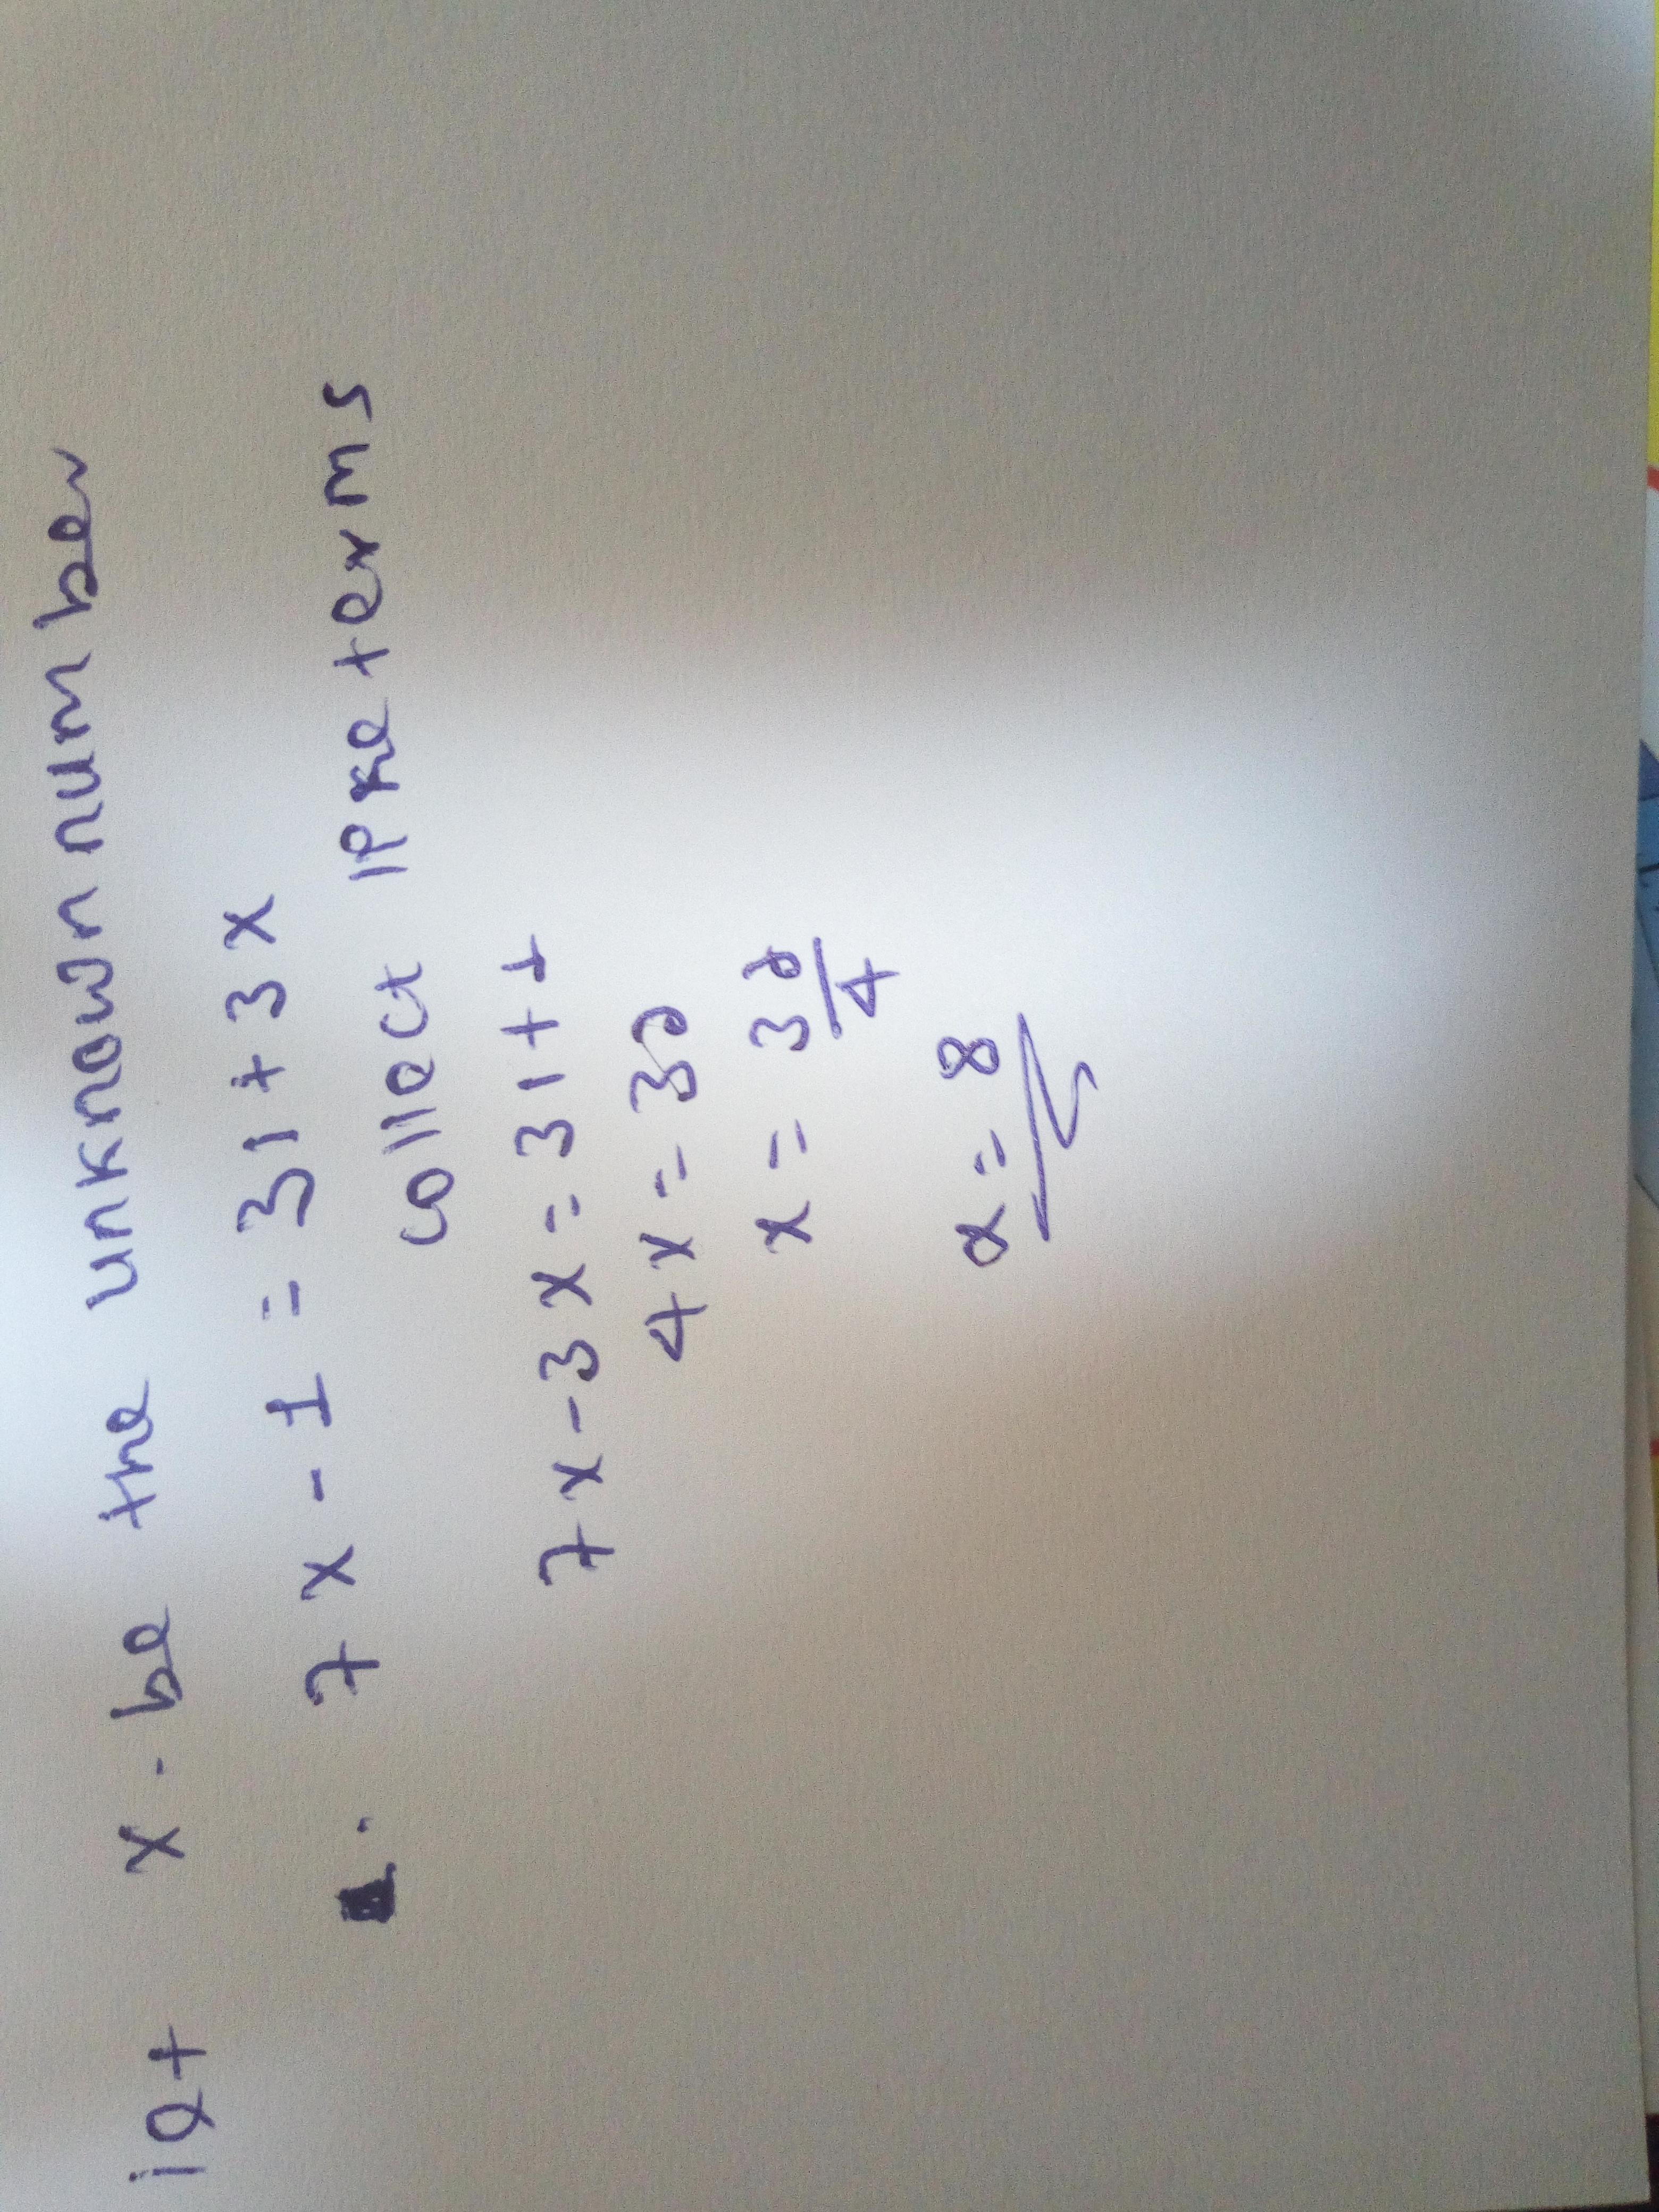 let x. be the unknown number
7x - 1 = 31 + 3x
collect like terms
7x - 3x = 31 + 1
4x = 32
x = 32/4
x = 8